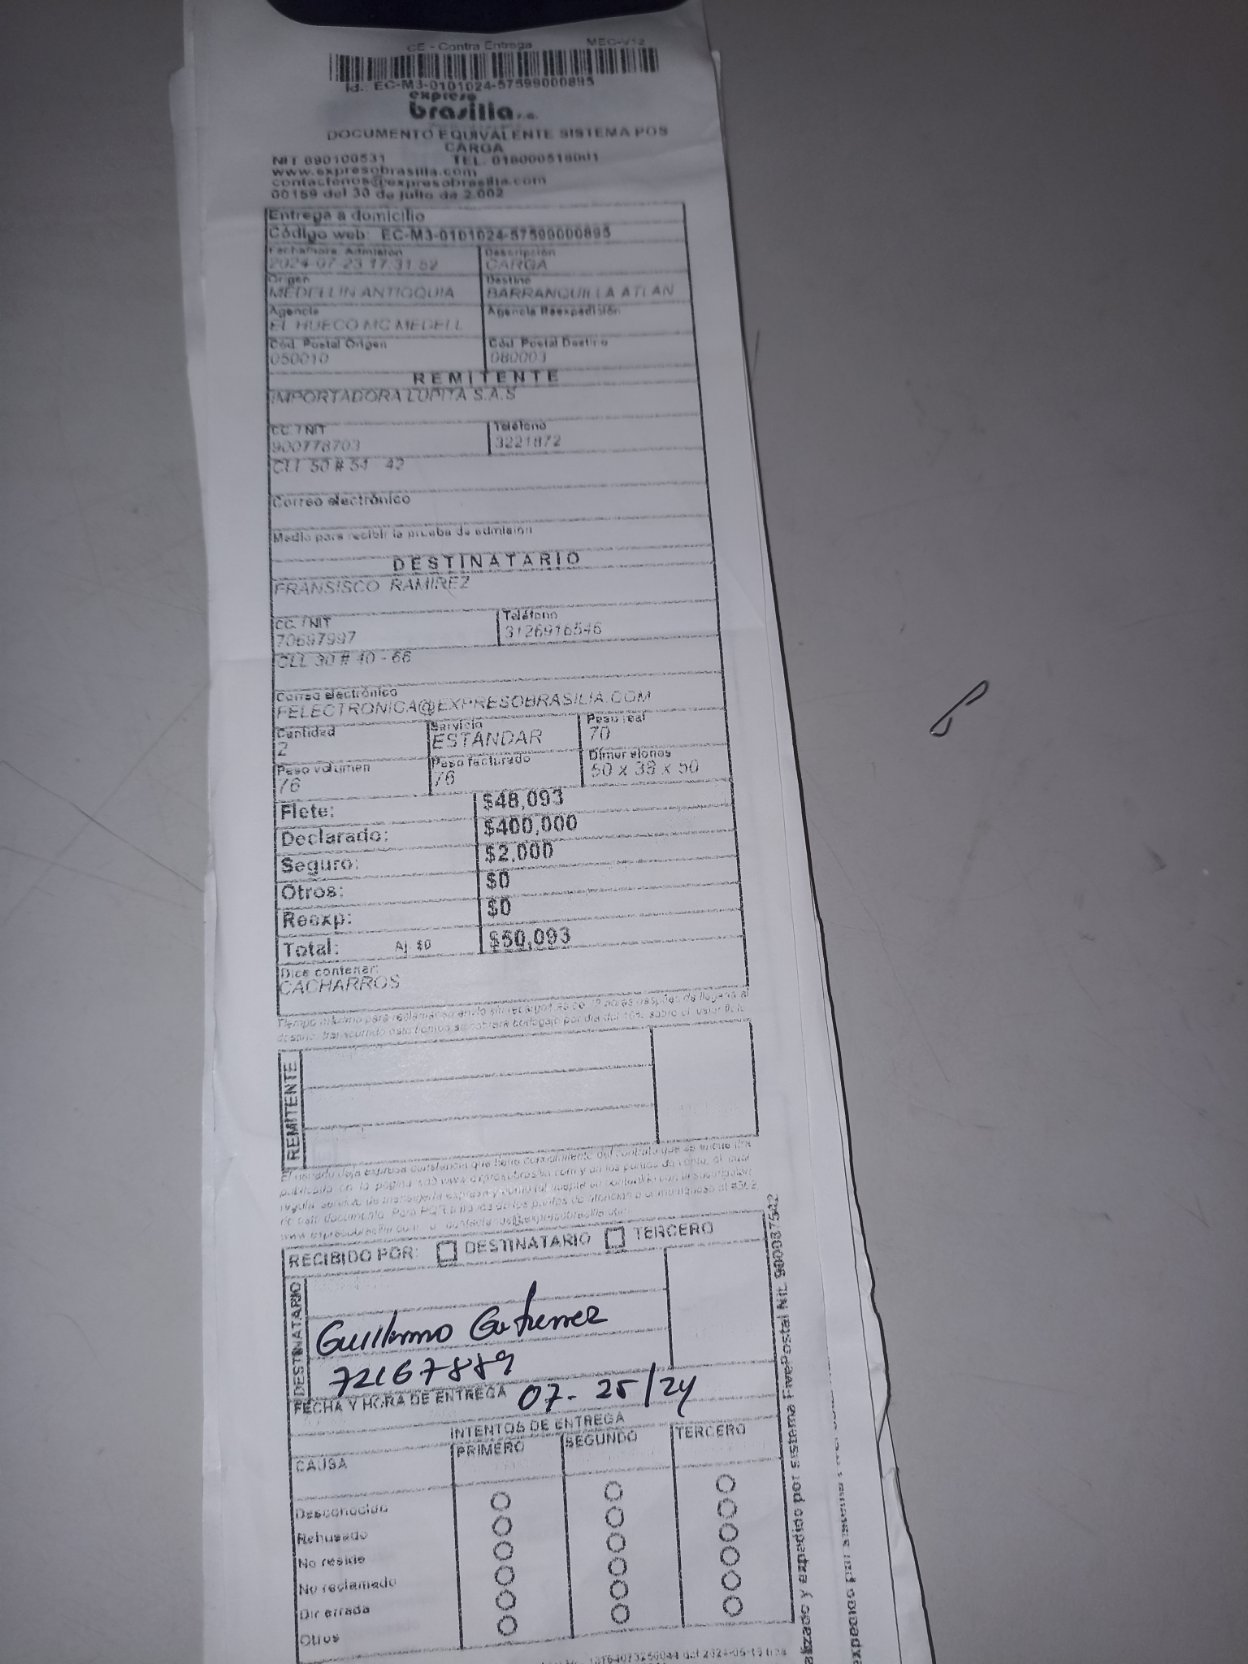 CE - Contra Entrega MEC-V12
Id. EC-M3-0101024-57599000895
expreso
brasilia s.a.
DOCUMENTO EQUIVALENTE SISTEMA POS
CARGA
NIT 890100531 TEL. 018000518001
www.expresobrasilia.com
contactenos@expresobrasilia.com
00159 del 30 de julio de 2.002
Entrega a domicilio
Código web: EC-M3-0101024-57599000895
Fecha/hora Admisión Descripción
2024-07-23 17:31:52 CARGA
Origen Destino
MEDELLIN ANTIOQUIA BARRANQUILLA ATLAN
Agencia Agencia Reexpedición
EL HUECO MC MEDELL
Cód. Postal Origen Cód. Postal Destino
050010 080003
REMITENTE
IMPORTADORA LUPITA S.A.S
CC. / NIT Teléfono
900778703 3221872
CLL 50 # 51 42
Correo electrónico
Medio para recibir la prueba de admisión
DESTINATARIO
FRANSISCO RAMIREZ
CC. / NIT Teléfono
70697997 3126916546
CLL 30 # 40 - 66
Correo electrónico
FELECTRONICA@EXPRESOBRASILIA.COM
Cantidad Servicio Peso real
2 ESTANDAR 70
Peso volumen Peso facturado Dimensiones
76 76 50 x 38 x 50
Flete: $48,093
Declarado: $400,000
Seguro: $2,000
Otros: $0
Reexp: $0
Total: Aj. $0 $50,093
Dice contener:
CACHARROS
REMITENTE
RECIBIDO POR: DESTINATARIO TERCERO
DESTINATARIO
Guillermo Gutierrez
72167889
FECHA Y HORA DE ENTREGA 07-25/24
INTENTOS DE ENTREGA
CAUSA PRIMERO SEGUNDO TERCERO
Desconocido
Rehusado
No reside
No reclamado
Dir errada
Otros
alizado y expedido por sistema FivePostal Nit. 900087542